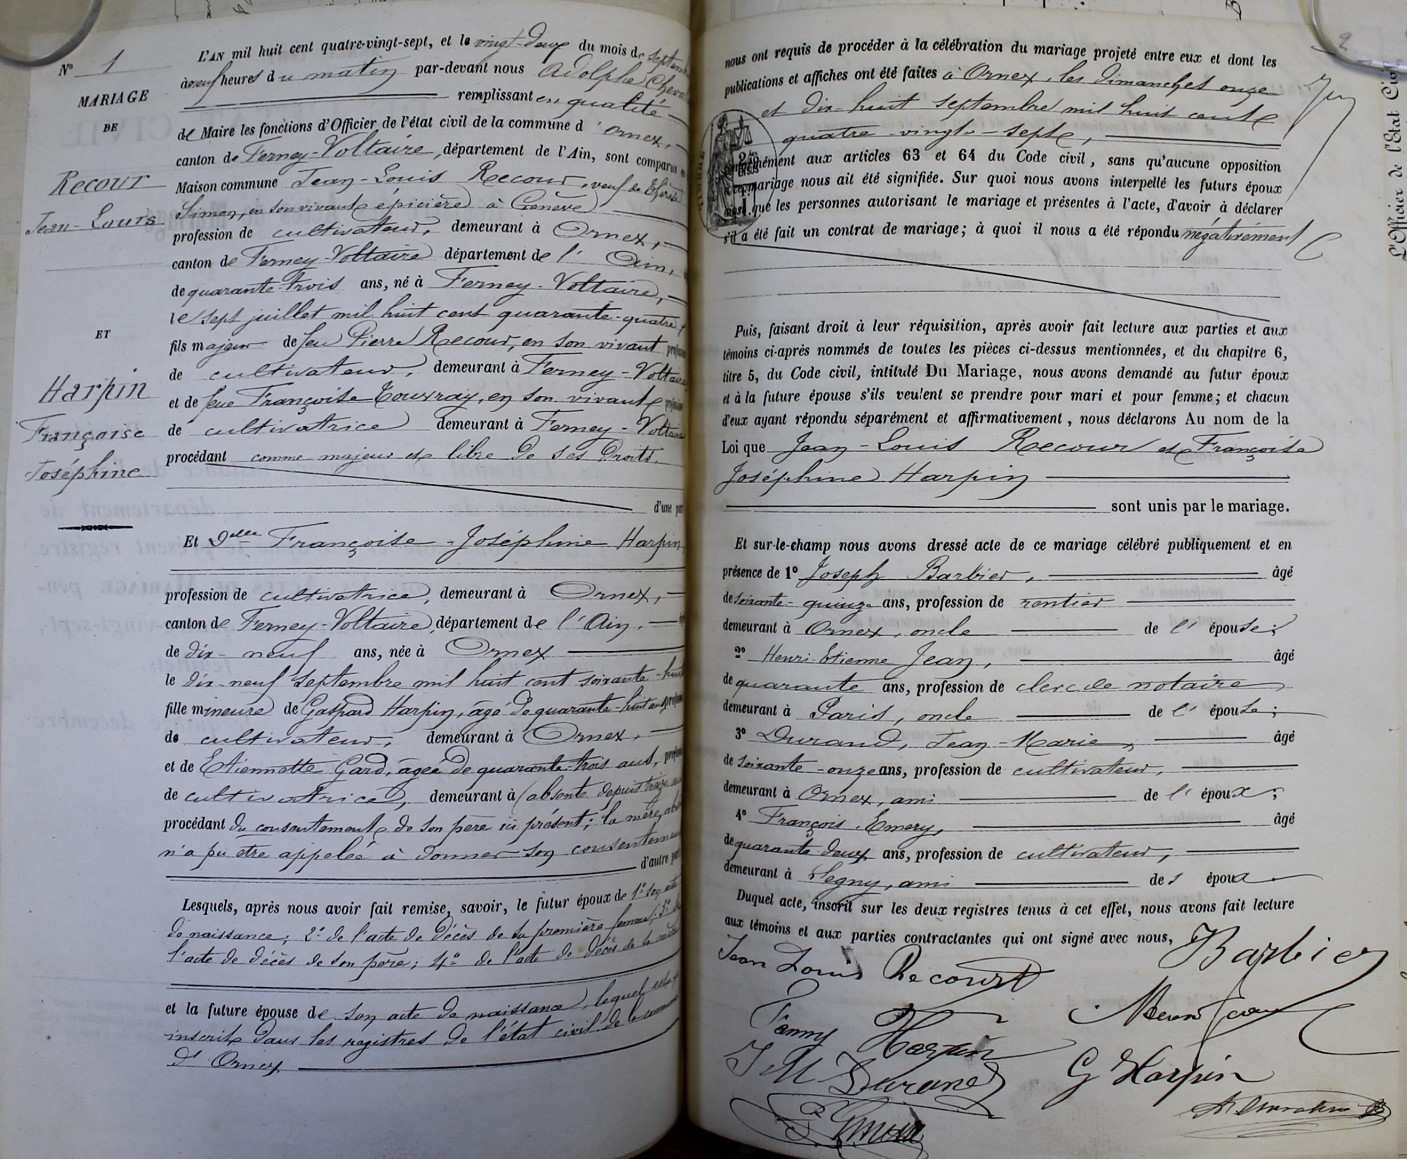 N° 1
MARIAGE
DE
Recour
Jean-Louis
ET
Harpin
Françoise
Joséphine
L'AN mil huit cent quatre-vingt-sept, et le vingt-deux du mois de septembre
à neuf heures du matin par-devant nous Adolphe
remplissant en qualité
de Maire les fonctions d'Officier de l'état civil de la commune d'Ornex,
canton de Ferney-Voltaire, département de l'Ain, sont comparus
Maison commune Jean-Louis Recour, veuf de
Simon, en son vivant épicière à Genève
profession de cultivateur, demeurant à Ornex,
canton de Ferney-Voltaire département de l'Ain,
de quarante-trois ans, né à Ferney-Voltaire,
le sept juillet mil huit cent quarante-quatre
fils majeur de feu Pierre Recour, en son vivant
de cultivateur, demeurant à Ferney-Voltaire
et de feue Françoise Touvray, en son vivant
de cultivatrice demeurant à Ferney-Voltaire
procédant comme majeur et libre de ses Droits.
d'une part
Et Delle Françoise-Joséphine Harpin
profession de cultivatrice, demeurant à Ornex,
canton de Ferney-Voltaire, département de l'Ain,
de dix-neuf ans, née à Ornex
le dix-neuf septembre mil huit cent soixante-huit
fille mineure de Gaspard Harpin, âgé de quarante-huit ans,
de cultivateur, demeurant à Ornex,
et de Etiennette Gard, âgée de quarante-trois ans,
de cultivatrice, demeurant à (absente depuis treize
procédant du consentement de son père ici présent; la mère
n'a pu être appelée à donner son consentement
d'autre part
Lesquels, après nous avoir fait remise, savoir, le futur époux de 1° son acte
de naissance; 2° de l'acte de décès de sa première femme; 3° de
l'acte de décès de son père; 4° de l'acte de décès de sa mère
et la future épouse de son acte de naissance, lequel
inscrit dans les registres de l'état civil de la commune
d'Ornex
nous ont requis de procéder à la célébration du mariage projeté entre eux et dont les
publications et affiches ont été faites à Ornex, les dimanches onze
et dix huit septembre mil huit cent
quatre-vingt-sept,
conformément aux articles 63 et 64 du Code civil, sans qu'aucune opposition
mariage nous ait été signifiée. Sur quoi nous avons interpellé les futurs époux
que les personnes autorisant le mariage et présentes à l'acte, d'avoir à déclarer
s'il a été fait un contrat de mariage; à quoi il nous a été répondu négativement
Puis, faisant droit à leur réquisition, après avoir fait lecture aux parties et aux
témoins ci-après nommés de toutes les pièces ci-dessus mentionnées, et du chapitre 6,
titre 5, du Code civil, intitulé Du Mariage, nous avons demandé au futur époux
et à la future épouse s'ils veulent se prendre pour mari et pour femme; et chacun
d'eux ayant répondu séparément et affirmativement, nous déclarons Au nom de la
Loi que Jean-Louis Recour et Françoise
Joséphine Harpin
sont unis par le mariage.
Et sur-le-champ nous avons dressé acte de ce mariage célébré publiquement et en
présence de 1° Joseph Barbier, âgé
de soixante-quinze ans, profession de rentier
demeurant à Ornex, oncle de l'épouse;
2° Henri-Etienne Jean, âgé
de quarante ans, profession de clerc de notaire
demeurant à Paris, oncle de l'épouse;
3° Durand, Jean-Marie, âgé
de soixante-onze ans, profession de cultivateur,
demeurant à Ornex, ami de l'époux;
4° François Emery, âgé
de quarante deux ans, profession de cultivateur,
demeurant à Segny, ami de l'époux
Duquel acte, inscrit sur les deux registres tenus à cet effet, nous avons fait lecture
aux témoins et aux parties contractantes qui ont signé avec nous,
Barbier
Jean Louis Recourt
Fanny Harpin
J M Durand
G Harpin
L'Officier de l'État Civil
2